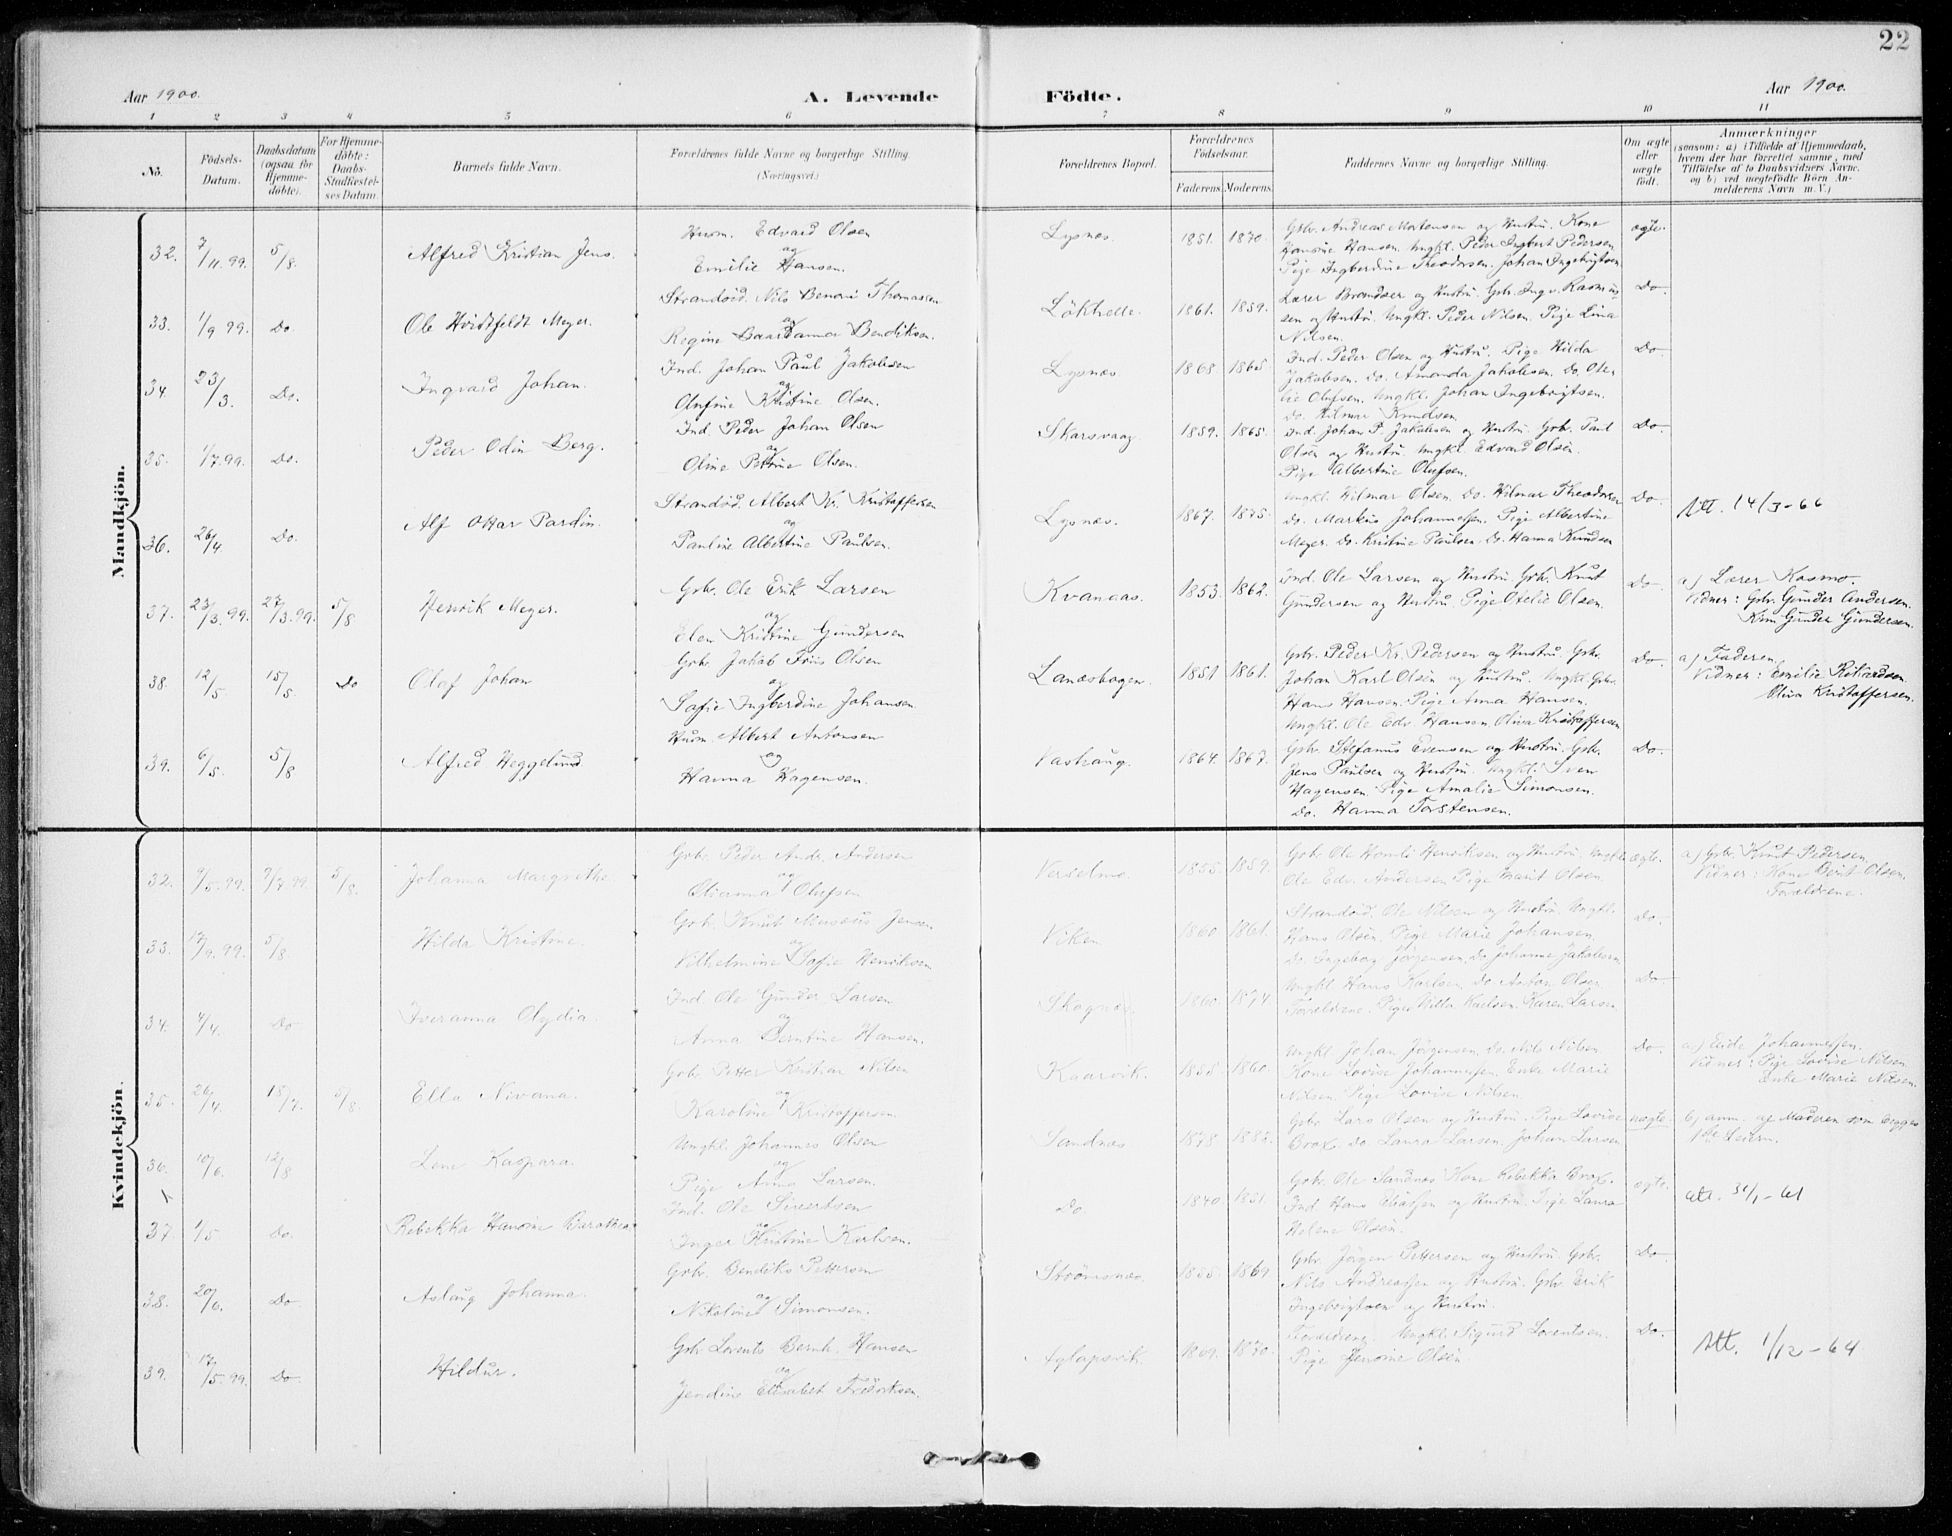 22
Aar 1900. A. Levende Födte. Aar 1900.
1 2 3 4 5 6 7 8 9 10 11
No.
Födsels-Datum.
Daabsdatum (ogsaa for Hjemme-döbte).
For Hjemme-döbte: Daabs-Stadfæstel-ses Datum.
Barnets fulde Navn.
Forældrenes fulde Navne og borgerlige Stilling. (Næringsvei.)
Forældrenes Bopæl.
Forældrenes Födselsaar. Faderens. Moderens.
Faddernes Navne og borgerlige Stilling.
Om ægte eller uægte födt.
Anmærkninger
(saasom: a) i Tilfælde af Hjemmedaab,
hvem der har forrettet samme, med
Tilföielse af to Daabsvidners Navne.
og b) ved uægtefödte Börn An-
melderens Navn m. V.)
Mandkjön.
32. 7/11.99. 5/8. Alfred Kristian Jens. Husm. Edvard Olsen og Emilie Hansen. Lysnæs. 1851. 1870. Gbr. Andreas Mortensen og Hustru. Kone
Hansine Hansen. Ungkl. Peder Ingbert Pedersen
Pige Ingberdine Theodorsen. Johan Ingebrigtsen. ægte.
33. 1/9 99. Do. Ole Hvidtfeldt Meyer. Strandsid. Nils Benoni Thomassen og Regine Baardanna Bendiksen. Lökhelle. 1861. 1859. Lærer Brandser og Hustru. Gbr. Ingv. Rasmus-
sen og Hustru. Ungkl. Peder Nilsen. Pige Lina
Nilsen. Do.
34. 23/3. Do. Ingvald Johan. Ind. Johan Paul Jakobsen og Olufine Kristine Olsen. Lysnæs. 1868 1865 Ind. Peder Olsen og Hustru. Pige Hilda
Jakobsen. Do. Amanda Jakobsen. Do. Ote-
lie Olufsen. Ungkl. Johan Ingebrigtsen.
Do. Hilmar Knudsen. Do.
35. 1/7.99. Do. Peder Odin Berg. Ind. Peder Johan Olsen og Oline Petrine Olsen. Skarsvaag. 1859. 1865. Ind. Johan P. Jakobsen og Hustru. Gbr. Paul
Olsen og Hustru. Ungkl. Edvard Olsen.
Pige Albertine Olufsen. Do.
36. 26/4. Do. Alf Ottar Pardin. Strandsid. Albert Kr. Kristoffersen og Pauline Albertine Paulsen. Lysnæs. 1867. 1875. Ungkl. Hilmar Olsen. Do. Hilmar Theodorsen
Do. Markus Johannesen. Pige Albertine
Meyer. Do. Kristine Paulsen. Do. Hanna Knudsen Do. Att. 14/3-66
37. 23/3.99. 27/3.99. 5/8 Henrik Meyer. Gbr. Ole Erik Larsen og Elen Kristine Gundersen Kvanaas. 1853. 1862. Ind. Ole Larsen og Hustru. Gbr. Knut
Gundersen og Hustru. Pige Otelie Olsen. Do. a) Lærer Kosmo.
Vidner: Gbr. Gunder Andersen.
Gunder Gundersen.
38. 12/5 15/5. Do Olaf Johan Gbr. Jakob Friis Olsen og Sofie Ingberdine Johansen. Lanæsbogen. 1851 1861. Gbr. Peder Kr. Pedersen og Hustru. Gbr.
Johan Karl Olsen og Hustru. Ungkl. Gbr.
Hans Hansen. Pige Anna Hansen.
Ungkl. Ole Edv. Hansen. Oliva Kristoffersen Do. a) Faderen.
Vidner: Emilie Rikardsen
Oliva Kristoffersen.
39. 6/5. 5/8 Alfred Heggelund Husm. Albert Antonsen og Hanna Hagensen. Vashaug. 1864. 1867. Gbr. Stefanus Evensen og Hustru. Gbr.
Jens Paulsen og Hustru. Ungkl. Sven
Hagensen. Pige Amalie Simonsen.
Do. Hanna Torstensen. Do.
Kvindekjön.
32. 9/5.99. 9/7 99. 5/8. Johanna Margrethe. Gbr. Peder Andr. Andersen og Olianna Olufsen Verselmo. 1855. 1859. Gbr. Ole Henriksen og Hustru. Ungkl.
Ole Edv. Andersen Pige Marit Olsen. ægte. a) Gbr. Knut Pedersen.
Vidner: Kone Berit Olsen.
Forældrene.
33. 17/9.99. 5/8 Hilda Kristine. Gbr. Knut Musæus Jensen og Vilhelmine Sofie Henriksen. Viken 1860 1861. Strandsid. Ole Nilsen og Hustru. Ungkl.
Hans Olsen. Pige Marie Johansen
Do. Ingeborg Jörgensen. Do. Johanne Jakobsen. Do.
34. 4/4. Do Iveranna Olydia. Ind. Ole Gunder Larsen og Anna Berntine Hansen. Skognæs. 1860. 1874 Ungkl. Hans Karlsen. Do. Anton Olsen
Forældrene. Pige Milla Karlsen. Karen Larsen Do
35. 26/4. 15/7. 5/8 Ella Nivana. Gbr. Petter Kristian Nilsen og Karoline Kristoffersen. Kaarvik. 1855. 1860. Ungkl. Johan Jörgensen. Do. Nils Nilsen
Kone Lovise Johannesen. Enke Marie
Nilsen. Pige Lovise Nilsen. Do. a) Johannesen.
Vidner: Pige Lovise Nilsen
Enke Marie Nilsen.
36. 10/6. 12/8 Lene Kaspara. Ungkl. Johannes Olsen og Pige Anna Larsen. Sandnæs 1878 1883. Gbr. Lars Olsen og Hustru. Pige Lovise
Brox. Do. Laura Larsen. Johan Larsen uægte. b) anm. af Moderen som begges
1ste Leierm.
37. 1/5 Do. Rebekka Hansine Barathea Ind. Ole Sivertsen og Inger Kristine Karlsen. Do 1840 1851. Gbr. Ole Sandnæs Kone Rebekka Brox.
Ind. Hans Eliassen og Hustru. Pige Laura
Helene Olsen. ægte. att. 31/1-61
38. 20/6. Do Aslaug Johanna. Gbr. Bendiks Pettersen og Nikoline Simonsen. Strömsnæs. 1855. 1869 Gbr. Jörgen Pettersen og Hustru. Gbr.
Nils Andreassen og Hustru. Gbr. Erik
Ingebrigtsen og Hustru. Do
39. 17/5.99. Do. Hildur. Gbr. Lorents Bernh. Hansen og Jendine Elisabet Fredriksen. Aglapsvik. 1869. 1870. Forældrene. Ungkl. Sigurd Lorentsen.
Pige Jensine Olsen Do. Att. 1/12-64